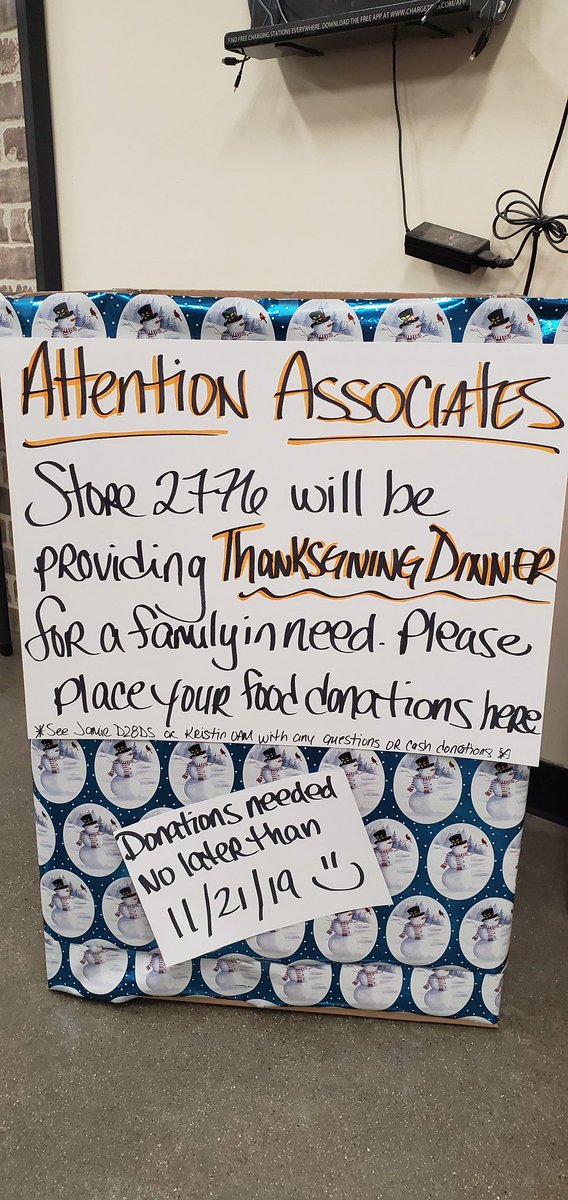 FIND FREE CHARGING STATIONS EVERYWHERE. DOWNLOAD THE FREE APP AT WWW.CHARGET
.COM/APP
Attention Associates
Store 2776 will be
providing Thanksgiving Dinner
for a family in need. Please
place your food donations here
*See Jamie D28DS or Kristin OAM with any questions or cash donations *
Donations needed
No later than
11/21/19